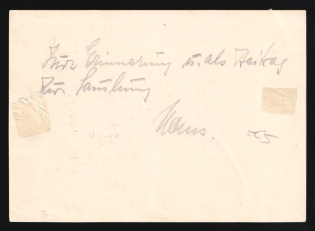 Zur Erinnerung u. als Beitrag
zur Samlung
Hans.